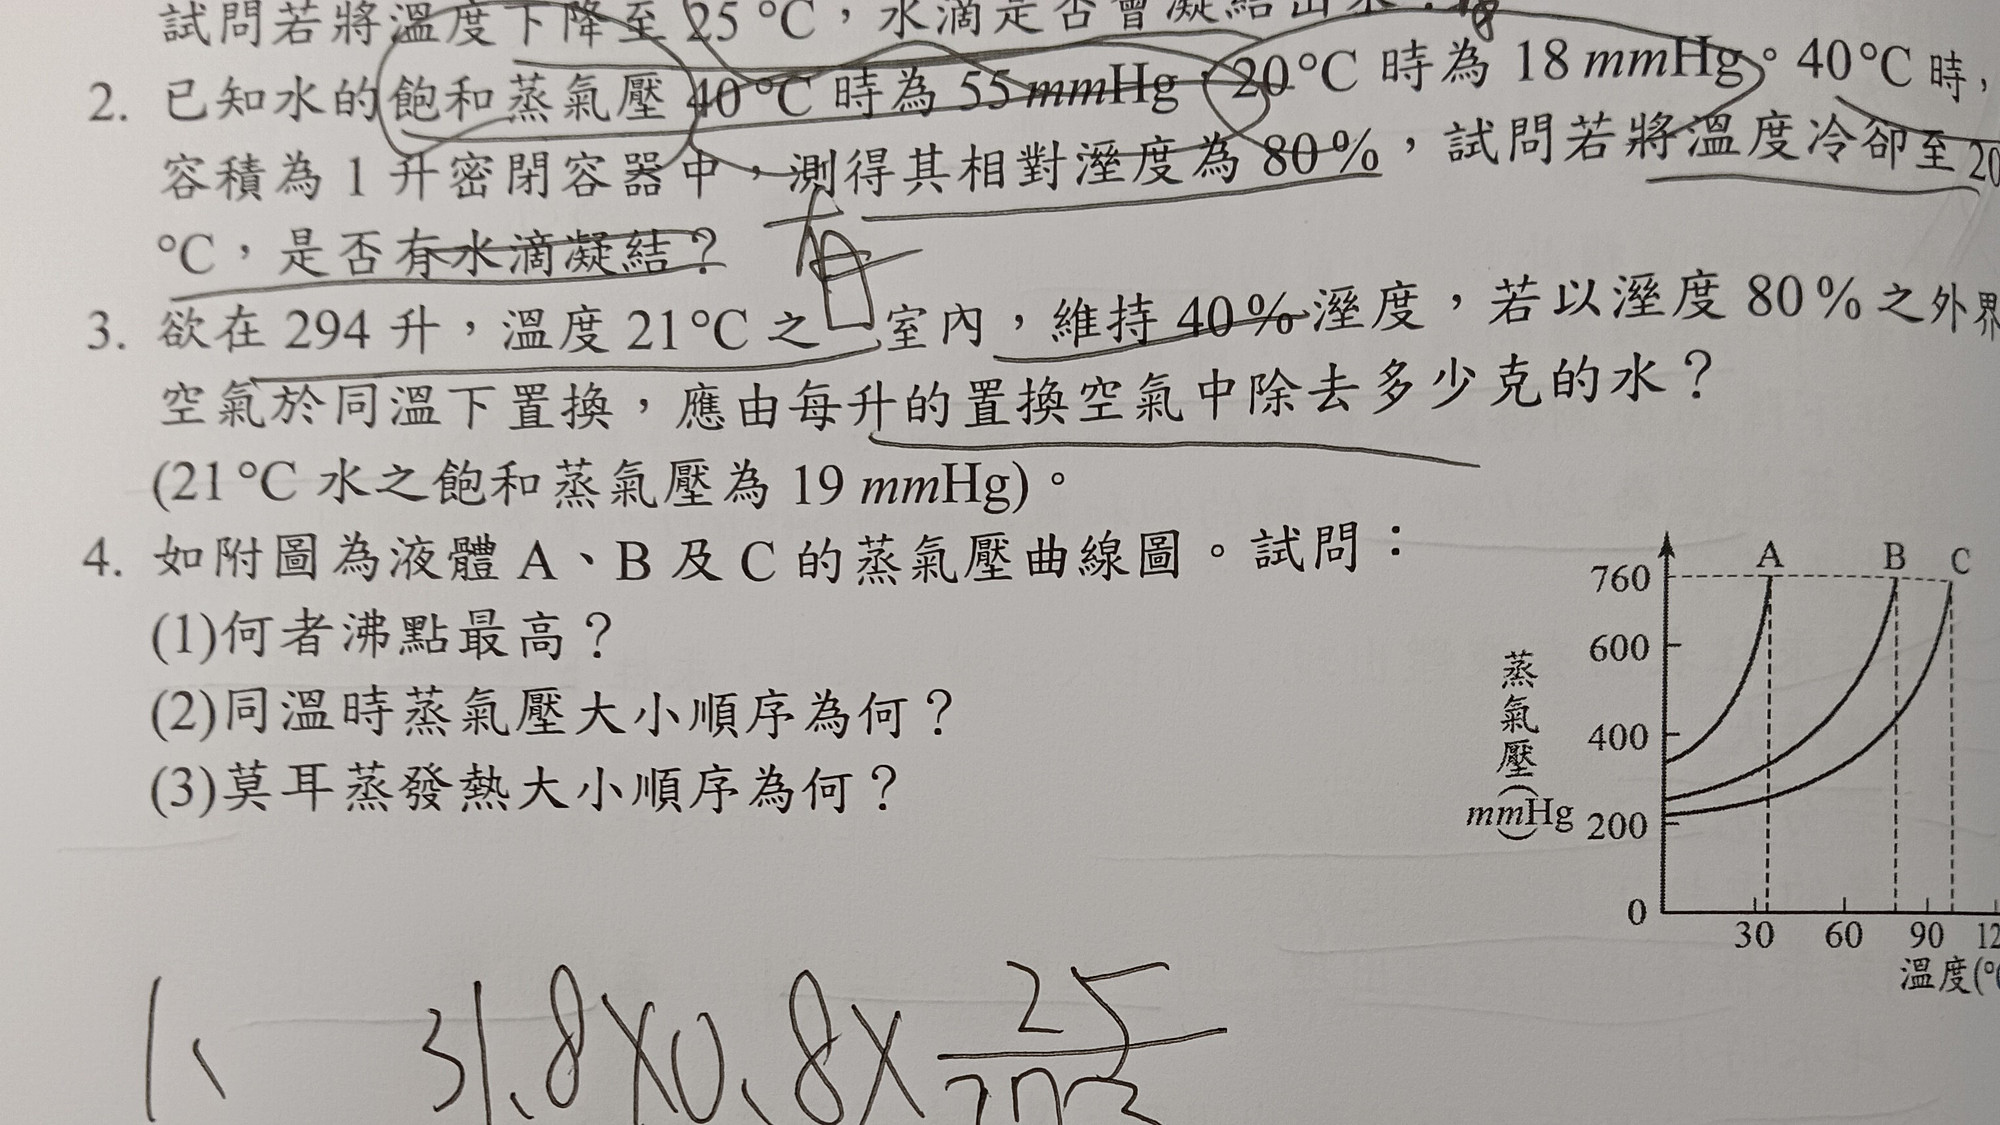 試問若將溫度下降至 25 °C，水滴是否會凝結出水？
2. 已知水的飽和蒸氣壓 40 °C 時為 55 mmHg，20 °C 時為 18 mmHg。40 °C 時，
容積為 1 升密閉容器中，測得其相對溼度為 80 %，試問若將溫度冷卻至 20
°C，是否有水滴凝結？ 有
3. 欲在 294 升，溫度 21 °C 之室內，維持 40 % 溼度，若以溼度 80 % 之外界
空氣於同溫下置換，應由每升的置換空氣中除去多少克的水？
(21 °C 水之飽和蒸氣壓為 19 mmHg)。
4. 如附圖為液體 A、B 及 C 的蒸氣壓曲線圖。試問：
(1)何者沸點最高？
(2)同溫時蒸氣壓大小順序為何？
(3)莫耳蒸發熱大小順序為何？
A B C
760
600
400
200
0
蒸氣壓(mmHg)
30 60 90 12
溫度(°
1、 31.8×0.8×25